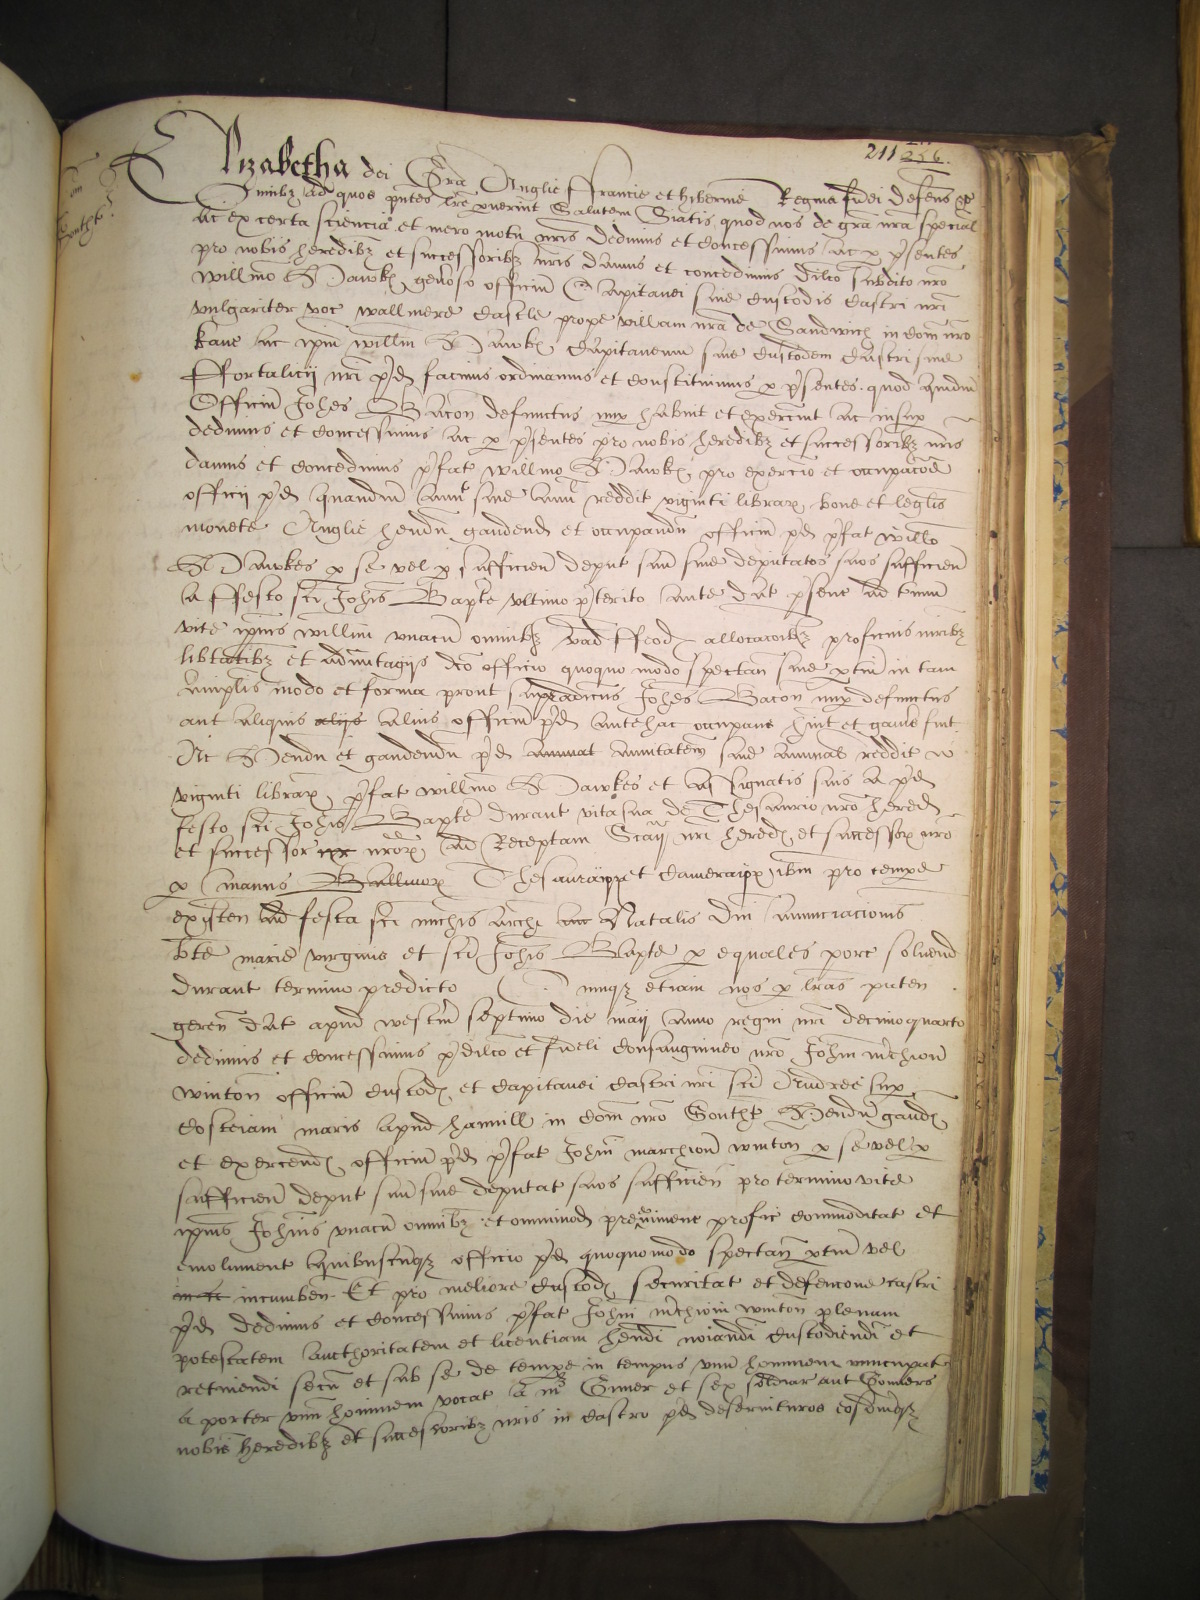 211 256.
Elizabetha dei Gra Anglie Ffrancie et hibernie Regina fidei defens &c
Omnibz ad quos pntes lre pvenerint Salutem Sciatis quod nos de gra nra special
ac ex certa sciencia et mero motu nris dedimus et concessimus ac p psentes
pro nobis heredibz et successoribz nris damus et concedimus dilco subdito nro
willmo Hawkes genoso officiu Capitanei sive custodis castri nri
vulgariter voc wallmere castle prope villam nra de Sandwich in com nro
kanc ac ipm willm Hawkes Capitaneum sive custodem castri sive
ffortalicii nri pd facimus ordinamus et constituimus p psentes quod quidm
Officiu Johes Bacon defunctus nup habuit et exercuit ac insup
dedimus et concessimus ac p psentes pro nobis heredibz et successoribz nris
damus et concedimus pfat willmo Hawkes pro exercico et occupacoe
officii pd quandm annu sive annu reddit viginti librar bone et legalis
monete Anglie hendu gaudend et occupandu officiu pd pfat willo
Hawkes p se vel p sufficien deput suu sive deputatos suos sufficien
a ffesto sci Johis Bapte ultimo pterito ante dat psenc ad tminu
vite ipius willmi unacu omnibz vad ffeod allocacoibz proficuis iuribz
libtatibz et advantagiis dco officio quoquo modo spectan sive ptin in tam
amplis modo et forma prout supradictus Johes Bacon nup defunctus
aut aliquis aliis alius officiu pd antehac occupans huit et gavis fuit
Ac Hendu et gaudendu pd annuat annitatem sive annual reddit
viginti librar pfat willmo Hawkes et assignatis suis a pd
festo sci Johis Bapte durant vita sua de Thesaurio nro hered
et successor nror ad Receptam Scaccii nri hered et successor nro
p manus Ballivor Thesaurarior et camerarior ibm pro tempe
existen ad festa sci michis archi Natalis dni annunciacionis
bte marie virginis et sci Johis Bapte p equales porc solvend
durant termino predicto Cumqz etiam nos p lras paten
geren dat apud westm septimo die maii anno regni nri decimoquarto
dedimus et concessimus pdilco et fideli consanguineo nro Johi mchion
winton officiu custod et capitanei castri nri sci Andree sup
costeiam maris apud hamill in com nro Southt Hendu gaud
et excercend officiu pd pfat Johi marchion winton p se vel p
sufficien deput suu sive deputat suos sufficien pro termino vite
ipius Johnis unacu omnibz et omnimod preeminenc profic commoditat et
emolument quibuscunqz officio pd quoquomodo spectan ptin vel
incumben Et pro meliore custod securitat et defencone castri
pd dedimus et concessimus pfat Johi mchioni winton plenam
potestatem aucthoritatem et licentiam hendi noiandi custodiendi et
retinendi secu et sub se de tempe in tempus unu hominem nuncupat
a porter unu hominem vocat a mr Gunner et sex soldiar aut Gonners
nobis heredibz et successoribz nris in castro pd deservituros eosdmqz